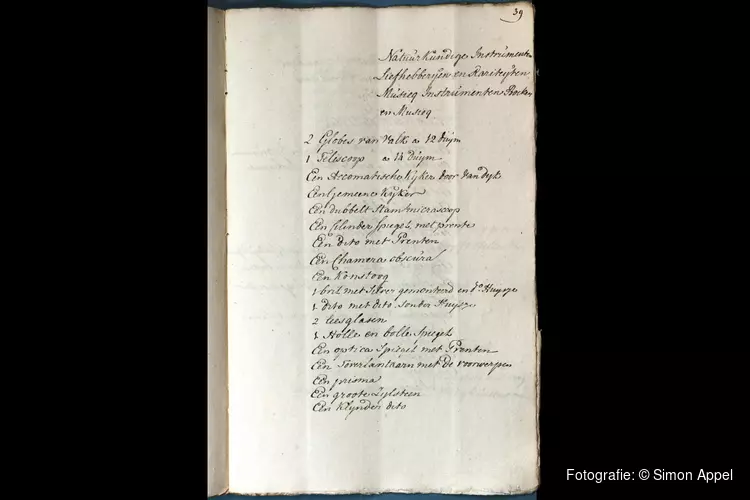 39
Natuurkundige Instrumente
liefhebberijen en Rariteijten
Musicq Instrumenten Boeken
en Musicq
2 Globes van Valk a 12 duijm
1 Telescoop a 14 duijm
Een Accomatische Kijker door van dyk
Een gemeene Kijker
Een dubbelt Stamtmicrascop
Een Cilinder Spiegel met prente
Een dito met Prenten
Een Chamera obscura
Een Konstoog
1 bril met Silver gemonteerd en do Huysje
1 dito met dito sonder Huysje
2 leesglasen
1 Holle en bolle Spiegel
Een optica Spiegel met Prenten
Een Toverlantaarn met de voorwerpen
Een prisma
Een groote Zylsteen
Een Klynden dito
Fotografie: © Simon Appel